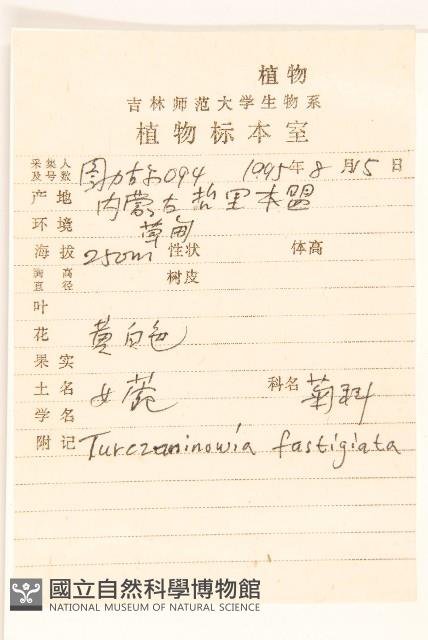 植物
吉林师范大学生物系
植物标本室
采集人及号数 图力古尔094 1995年8月15日
产地 内蒙古哲里木盟
环境 草甸
海拔 250m 性状 体高
胸高直径 树皮
叶
花 黄白色
果实
土名 女菀 科名 菊科
学名
附记 Turczaninowia fastigiata
國立自然科學博物館
NATIONAL MUSEUM OF NATURAL SCIENCE